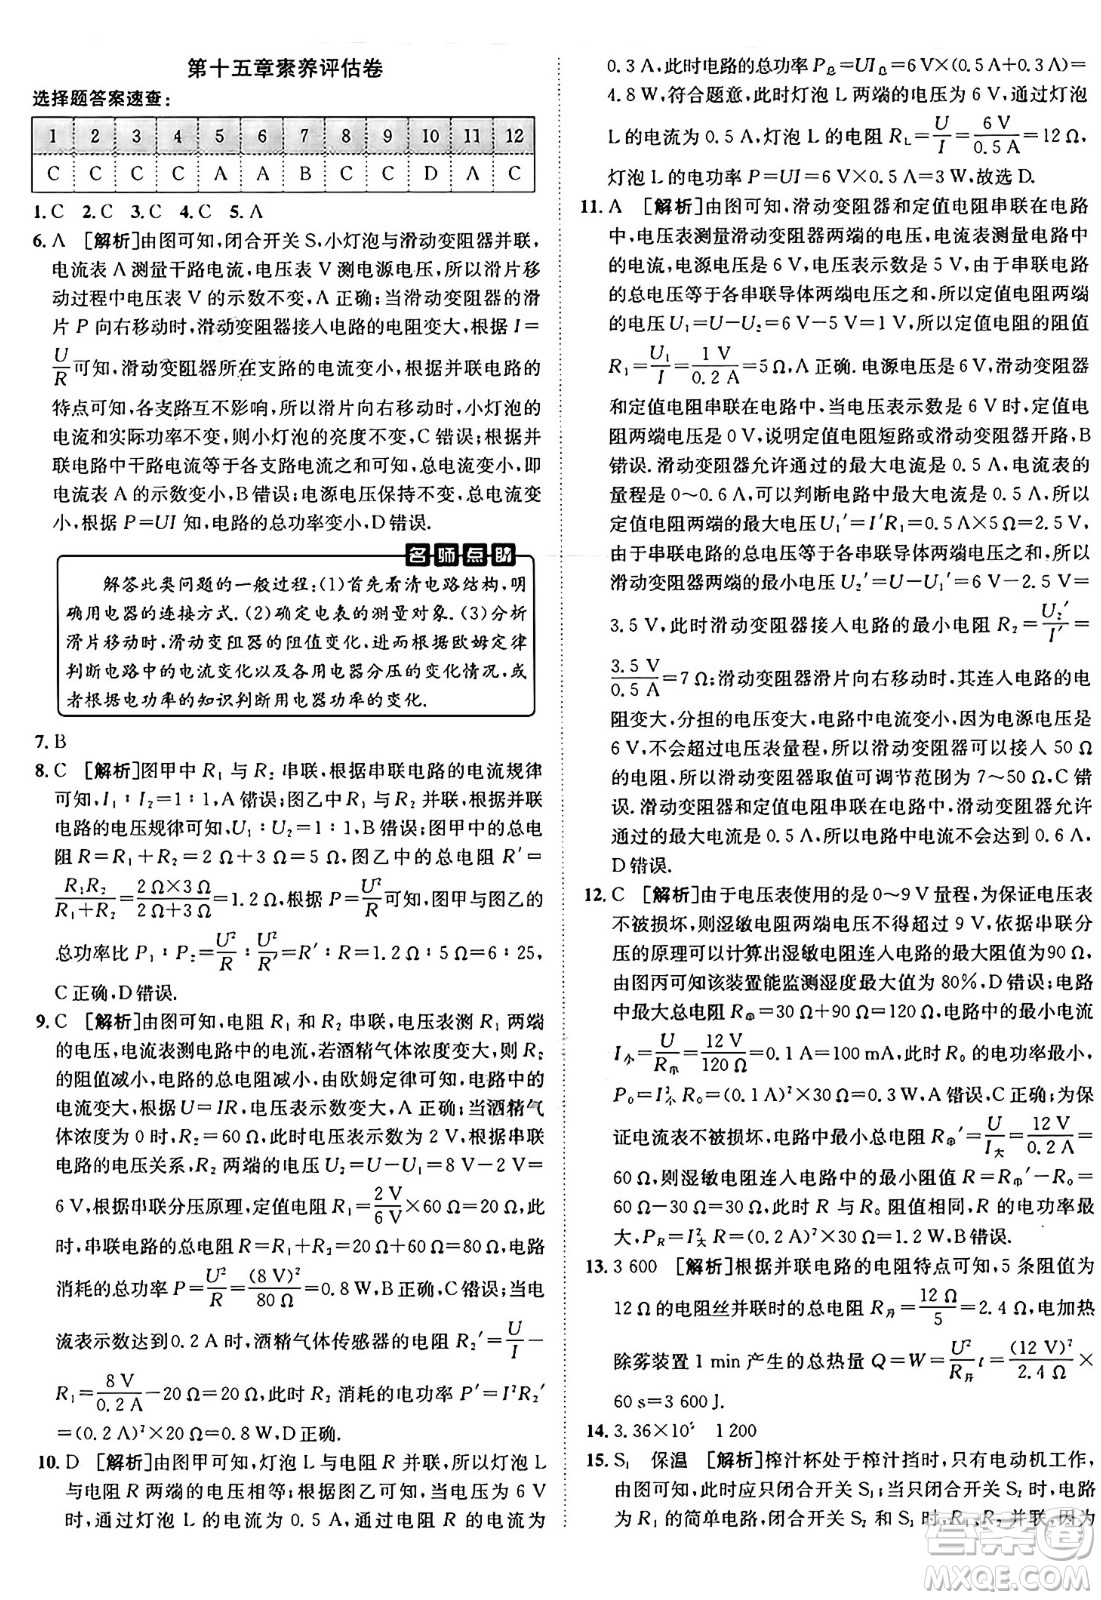 第十五章素养评估卷
选择题答案速查：
1 2 3 4 5 6 7 8 9 10 11 12
C C C C A A B C C D A C
1. C 2. C 3. C 4. C 5. A
6. A [解析]由图可知,闭合开关 S,小灯泡与滑动变阻器并联,
电流表 A 测量干路电流,电压表 V 测电源电压,所以滑片移
动过程中电压表 V 的示数不变,A 正确;当滑动变阻器的滑
片 P 向右移动时,滑动变阻器接入电路的电阻变大,根据 I=
U/R 可知,滑动变阻器所在支路的电流变小,根据并联电路的
特点可知,各支路互不影响,所以滑片向右移动时,小灯泡的
电流和实际功率不变,则小灯泡的亮度不变,C 错误;根据并
联电路中干路电流等于各支路电流之和可知,总电流变小,即
电流表 A 的示数变小,B 错误;电源电压保持不变,总电流变
小,根据 P=UI 知,电路的总功率变小,D 错误.
名师点助
解答此类问题的一般过程:(1)首先看清电路结构,明
确用电器的连接方式.(2)确定电表的测量对象.(3)分析
滑片移动时,滑动变阻器的阻值变化,进而根据欧姆定律
判断电路中的电流变化以及各用电器分压的变化情况,或
者根据电功率的知识判断用电器功率的变化.
7. B
8. C [解析]图甲中 R₁ 与 R₂ 串联,根据串联电路的电流规律
可知,I₁∶I₂=1∶1,A 错误;图乙中 R₁ 与 R₂ 并联,根据并联
电路的电压规律可知,U₁∶U₂=1∶1,B 错误;图甲中的总电
阻 R=R₁+R₂=2 Ω+3 Ω=5 Ω,图乙中的总电阻 R′=
R₁R₂/(R₁+R₂)=(2 Ω×3 Ω)/(2 Ω+3 Ω)=1.2 Ω,根据 P=U²/R 可知,图甲与图乙的
总功率比 P₁∶P₂=U²/R∶U²/R′=R′∶R=1.2 Ω∶5 Ω=6∶25,
C 正确,D 错误.
9. C [解析]由图可知,电阻 R₁ 和 R₂ 串联,电压表测 R₁ 两端
的电压,电流表测电路中的电流,若酒精气体浓度变大,则 R₂
的阻值减小,电路的总电阻减小,由欧姆定律可知,电路中的
电流变大,根据 U=IR,电压表示数变大,A 正确;当酒精气
体浓度为 0 时,R₂=60 Ω,此时电压表示数为 2 V,根据串联
电路的电压关系,R₂ 两端的电压 U₂=U-U₁=8 V-2 V=
6 V,根据串联分压原理,定值电阻 R₁=2 V/6 V×60 Ω=20 Ω,此
时,串联电路的总电阻 R=R₁+R₂=20 Ω+60 Ω=80 Ω,电路
消耗的总功率 P=U²/R=(8 V)²/80 Ω=0.8 W,B 正确,C 错误;当电
流表示数达到0.2 A时,酒精气体传感器的电阻 R₂′=U/I-
R₁=8 V/0.2 A-20 Ω=20 Ω,此时 R₂ 消耗的电功率 P′=I²R₂′
=(0.2 A)²×20 Ω=0.8 W,D 正确.
10. D [解析]由图甲可知,灯泡 L 与电阻 R 并联,则灯泡 L 与
电阻 R 两端的电压相等;根据图乙可知,当电压为 6 V
时,通过灯泡 L 的电流为 0.5 A,通过电阻 R 的电流为
0.3 A,此时电路的总功率 P总=UI总=6 V×(0.5 A+0.3 A)=
4.8 W,符合题意,此时灯泡 L 两端的电压为 6 V,通过灯泡
L 的电流为 0.5 A,灯泡 L 的电阻 R_L=U/I=6 V/0.5 A=12 Ω,
灯泡 L 的电功率 P=UI=6 V×0.5 A=3 W,故选 D.
11. A [解析]由图可知,滑动变阻器和定值电阻串联在电路
中,电压表测量滑动变阻器两端的电压,电流表测量电路中
的电流,从图可知,电压表示数是 5 V,由于串联电路
的总电压等于各串联导体两端电压之和,所以定值电阻两端
的电压 U₁=U-U₂=6 V-5 V=1 V,所以定值电阻的阻值
R₁=U₁/I=1 V/0.2 A=5 Ω,A 正确. 电源电压是 6 V,滑动变阻器
和定值电阻串联在电路中,当电压表示数是 6 V 时,定值电
阻两端电压是 0 V,说明定值电阻短路或滑动变阻器开路,B
错误. 滑动变阻器允许通过的最大电流是 0.5 A,电流表的
量程是 0~0.6 A,可以判断电路中最大电流是 0.5 A,所以
定值电阻两端的最大电压 U₁′=I′R₁=0.5 A×5 Ω=2.5 V,由
于串联电路的总电压等于各串联导体两端电压之和,所以
滑动变阻器两端电压 U₂′=U-U₁′=6 V-2.5 V=
3.5 V,此时滑动变阻器接入电路的最小电阻 R₂=U₂′/I′=
3.5 V/0.5 A=7 Ω;滑动变阻器滑片向右移动时,其连入电路的电
阻变大,分担的电压变大,电路中电流变小,因为电源电压为
6 V,不会超过电压表量程,所以滑动变阻器可以接入 50 Ω
的电阻,所以滑动变阻器取值可调节范围是 7~50 Ω,C 错
误. 滑动变阻器和定值电阻串联在电路中,滑动变阻器允许
通过的最大电流是 0.5 A,所以电路中电流不会达到 0.6 A,
D 错误.
12. C [解析]由于电压表使用的是 0~9 V 量程,为保证电压表
不被损坏,则湿敏电阻两端电压不得超过 9 V,依据串联分
压的原理可以计算出湿敏电阻连入电路的最大阻值为90 Ω,
由图丙可知该装置能监测湿度最大值为 80%,C 正确;电路
中最大总电阻 R串=R₀+R大=30 Ω+90 Ω=120 Ω,电路中的最小电流
I小=U/R串=12 V/120 Ω=0.1 A=100 mA,此时 R₀ 的电功率最小,
P₀=I小² R₀=(0.1 A)²×30 Ω=0.3 W,A 错误,D 错误;为保
证电流表不被损坏,电路中最小总电阻 R串′=U/I大=12 V/0.2 A=
60 Ω,则湿敏电阻连入电路中的最小阻值 R=R串′-R₀=
60 Ω-30 Ω=30 Ω,此时 R 与 R₀ 阻值相同,R 的电功率最
大,P_R=I大² R=(0.2 A)²×30 Ω=1.2 W,B 错误.
13. 3 600 [解析]根据并联电路的电阻特点可知,5 条阻值为
12 Ω 的电阻丝并联时的总电阻 R并=12 Ω/5=2.4 Ω,电加热
除雾装置 1 min 产生的总热量 Q=W=U²/R并 t=(12 V)²/2.4 Ω×
60 s=3 600 J.
14. 3.36×10⁵ 1 200
15. S₁ 保温 [解析]榨汁杯处于榨汁挡时,只有电动机工作,
由图知,此时应只闭合开关 S₁;当只闭合开关 S₂ 时,电路
为 R₁ 的简单电路,闭合开关 S₂ 和 S₃ 时,R₁、R₂ 并联,因为
答案圈
MXQE.COM